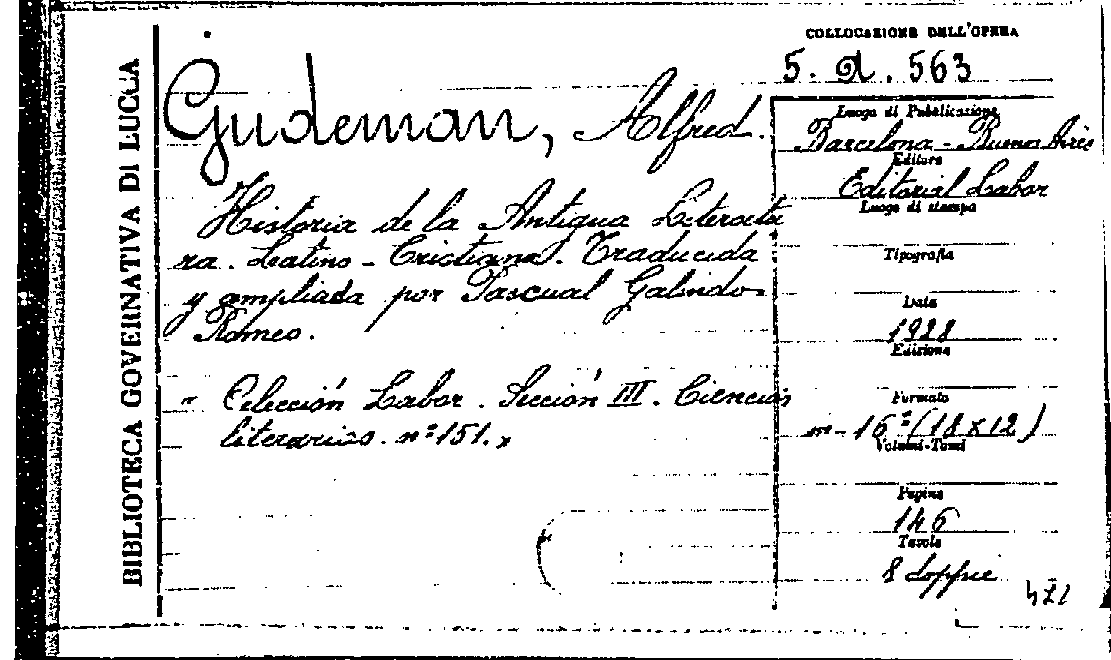 BIBLIOTECA GOVERNATIVA DI LUCCA
COLLOCAZIONE DELL'OPERA
5. A. 563
Gudeman, Alfred.
Historia de la Antigua Literatu
ra. Latino - Cristiana. Traducida
y ampliada por Pascual Galindo
Romeo.
" Colección Labor. Sección III. Ciencias
literarias. nº 151. "
Luogo di Pubblicazione
Barcelona - Buenos Aires
Editore
Editorial Labor
Luogo di stampa
Tipografia
Data
1928
Edizione
Formato
in - 16º (18 x 12)
Volumi-Tomi
Pagine
146
Tavole
8 doppie